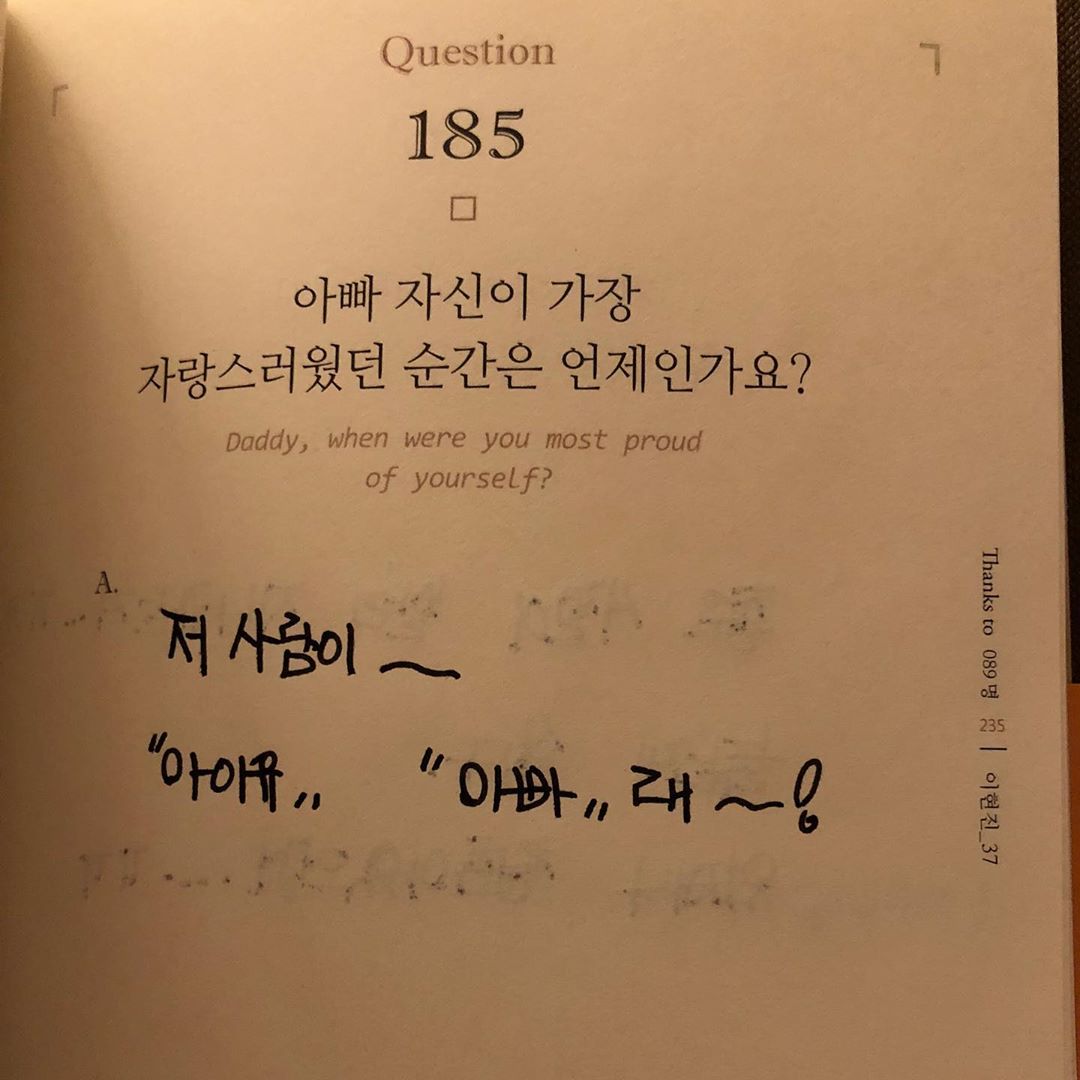 Question
185
아빠 자신이 가장
자랑스러웠던 순간은 언제인가요?
Daddy, when were you most proud
of yourself?
A.
저 사람이 ~
"아이유„ "아빠„ 래 ~!
Thanks to 089명 235 | 이현진_37